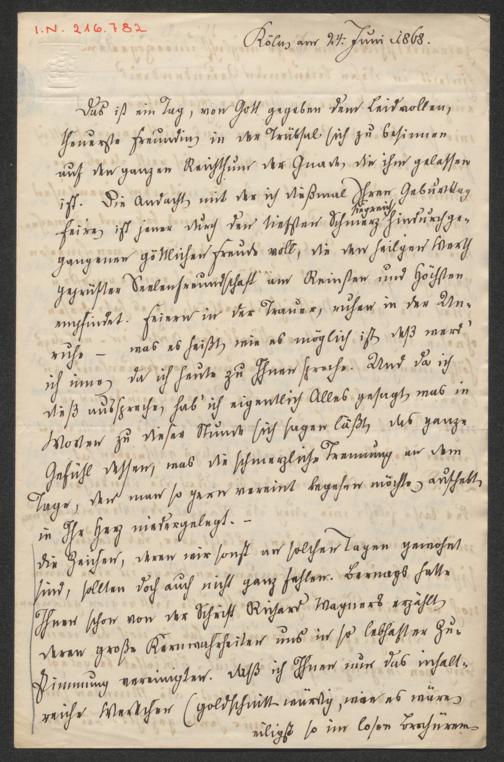 I.N. 216.782
Köln, am 24. Juni 1868.
Das ist ein Tag, von Gott gegeben dem Leidvollen,
theuerste Freundin, in der Trübsal sich zu besinnen
auf den ganzen Reichthum der Gnade, die ihm gelassen
ist. Die Andacht, mit der ich dießmal Ihren Geburtstag
feire, ist jener durch den tiefsten Schmerz siegreich hindurchge-
gangenen göttlichen Freude voll, die den heilgen Werth
geprüfter Seelenfreundschaft am Reinsten und Höchsten
empfindet. Feiern in der Trauer, ruhen in der Un-
ruhe – was es heißt, wie es möglich ist, deß werd'
ich inne, da ich heute zu Ihnen spreche. Und da ich
dieß ausspreche, hab' ich eigentlich Alles gesagt, was in
Worten zu dieser Stunde sich sagen läßt, das ganze
Gefühl dessen, was die schmerzliche Trennung an dem
Tage, den man so gern vereint begehen möchte,
in Ihr Herz niedergelegt. –
Die Zeichen, deren wir sonst an solchen Tagen gewohnt
sind, sollten doch auch nicht ganz fehlen. Bernays hatte
Ihnen schon von der Schrift Richard Wagners erzählt,
deren große Kernwahrheiten uns in so lebhafter Zu-
stimmung vereinigten. Daß ich Ihnen nun das inhalt-
reiche Werkchen (goldschnitt-würdig, wie es wäre)
eiligst so im losen Brochüren-